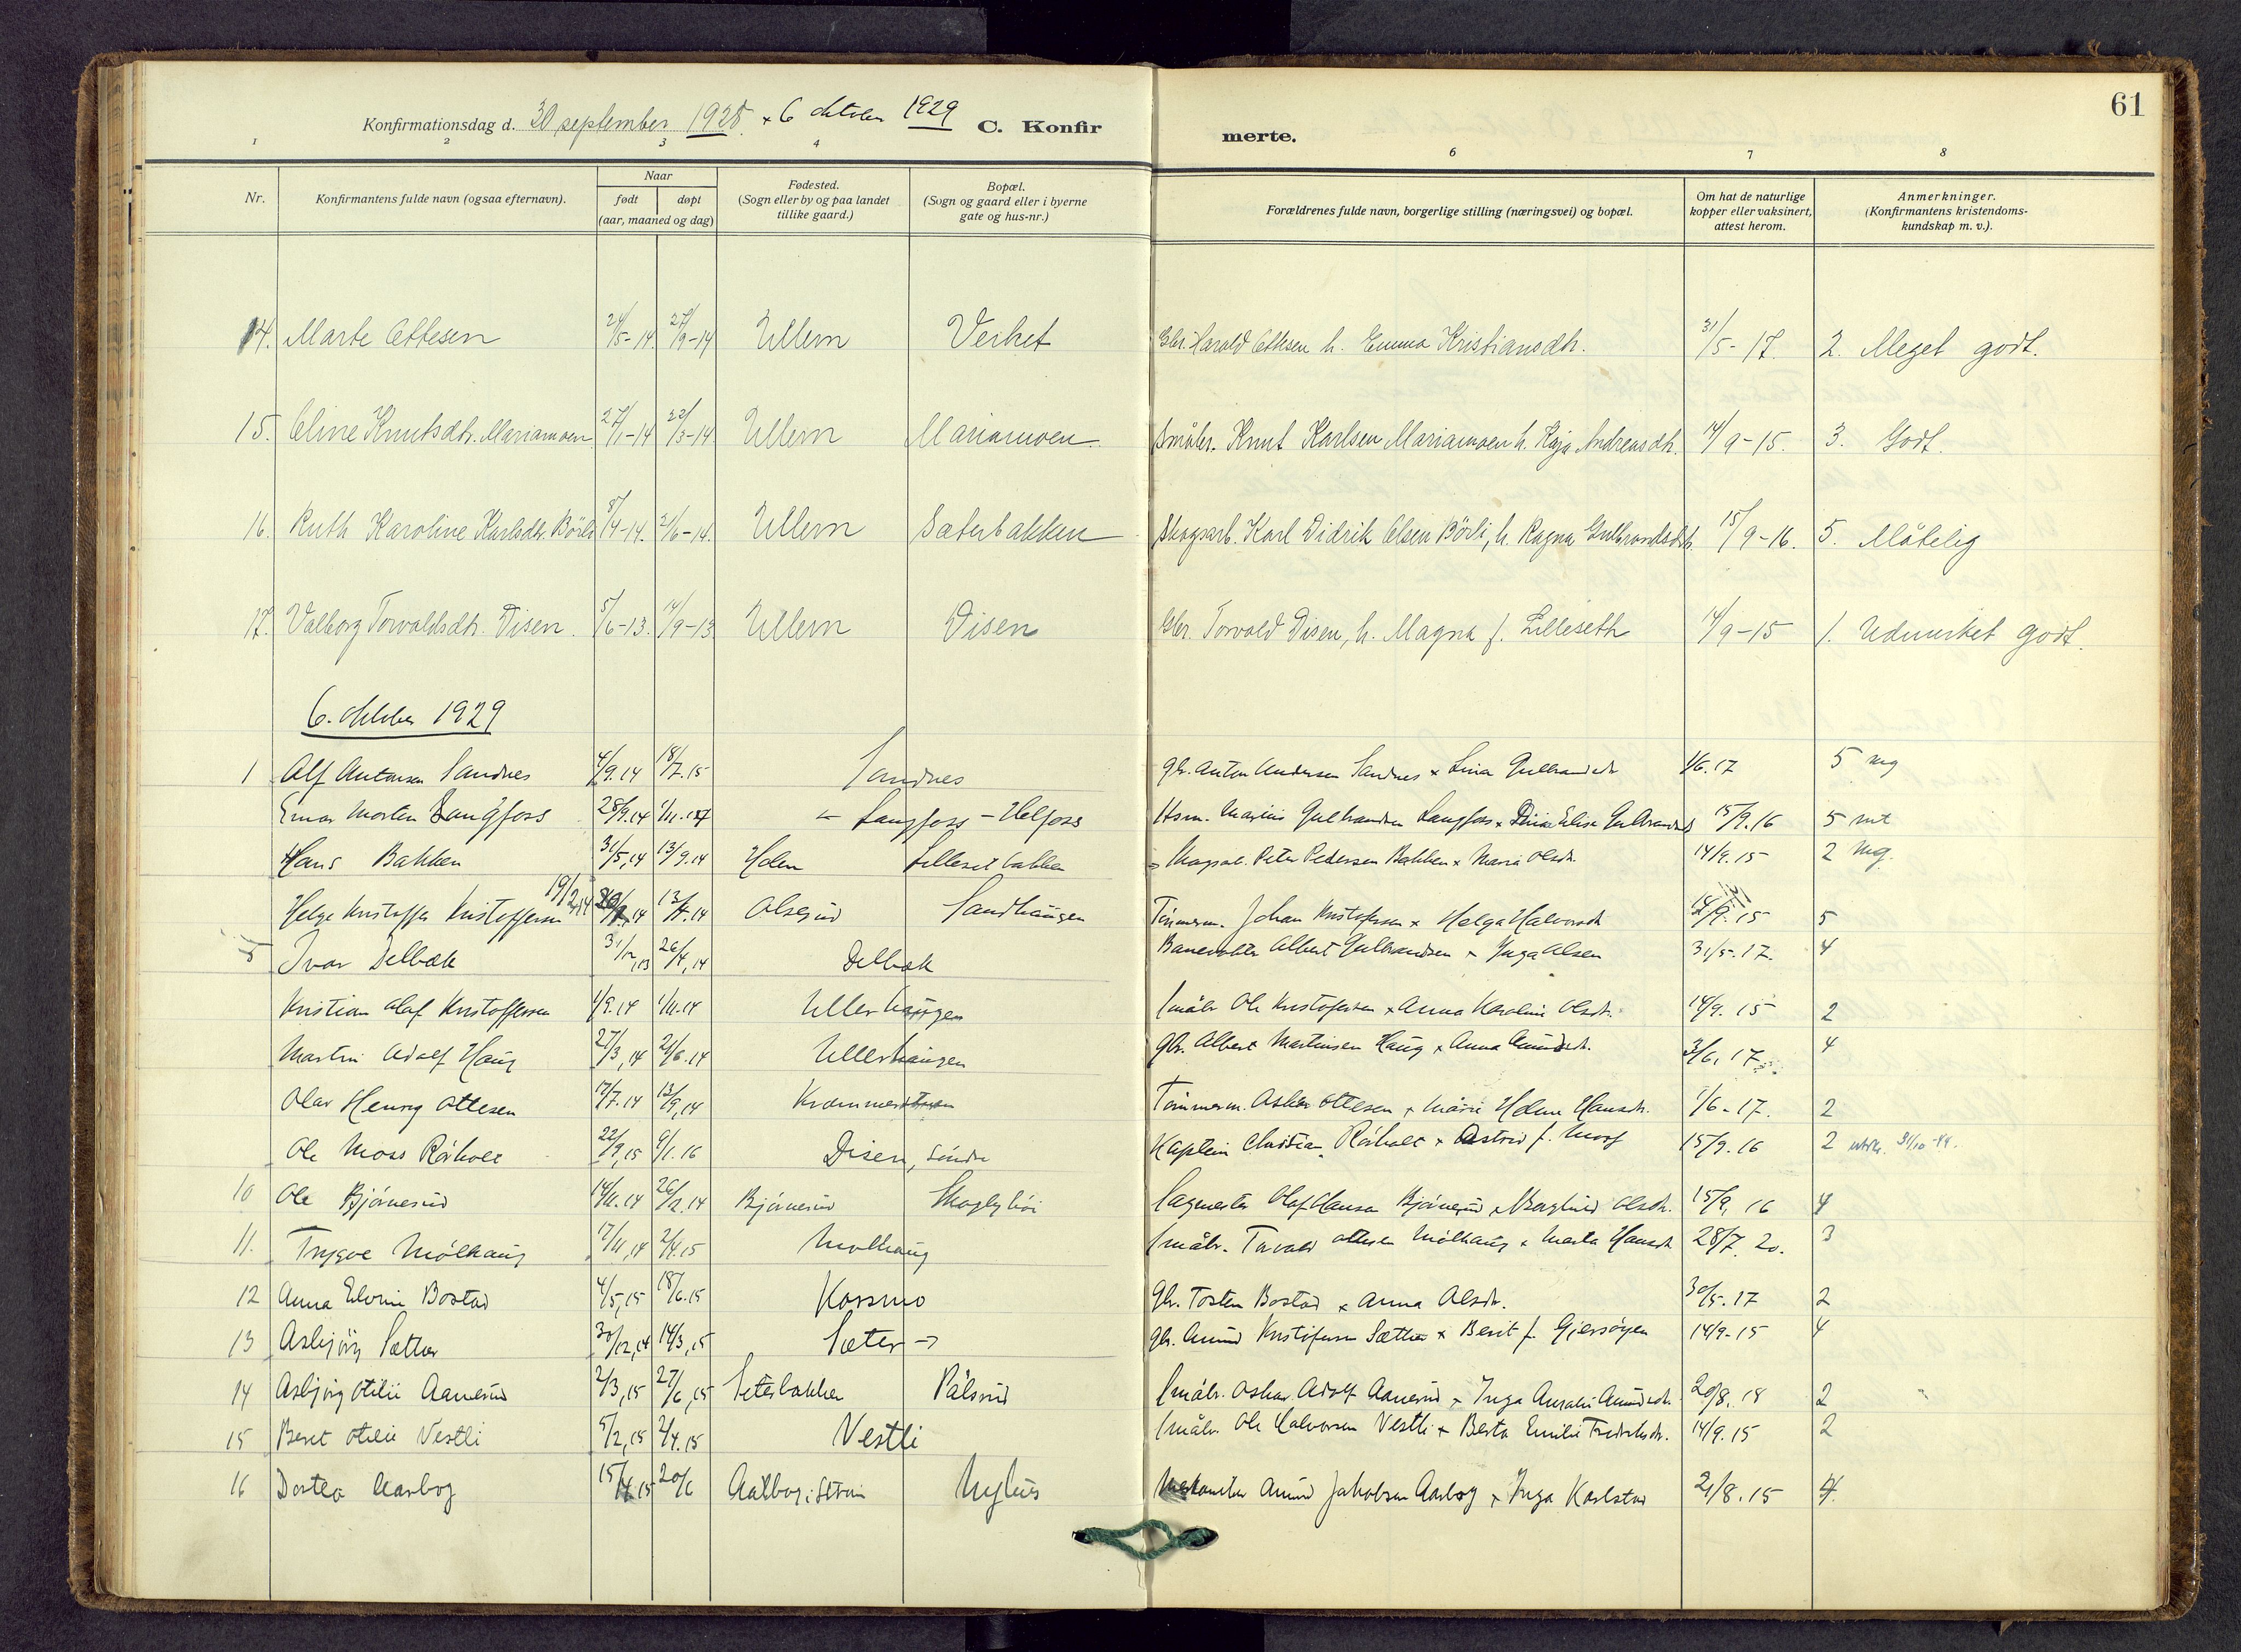 61
Konfirmationsdag d. 30 september 1928 + 6 oktober 1929 C. Konfirmerte.
1 2 3 4 6 7 8
Nr. Konfirmantens fulde navn (ogsaa efternavn). Naar født døpt (aar, maaned og dag) Fødested. (Sogn eller by og paa landet tillike gaard.) Bopæl. (Sogn og gaard eller i byerne gate og hus-nr.) Forældrenes fulde navn, borgerlige stilling (næringsvei) og bopæl. Om hat de naturlige kopper eller vaksinert, attest herom. Anmerkninger. (Konfirmantens kristendoms-kundskap m. v.).
14. Marte Ottesen 24/5-14 27/9-14 Ullern Verket Gbr. Harald Ottesen h. Emma Kristiansdtr. 31/5-17. 2. Meget godt.
15. Oline Knutsdtr. Mariamoen 27/1-14 22/3-14 Ullern Mariamoen Småbr. Knut Karlsen Mariamoen h. Kaja Andreasdtr. 14/9-15. 3. Godt.
16. Ruth Karoline Karlsdtr. Börli 8/4-14. 21/6-14. Ullern Sæterbakken Skogsarb. Karl Didrik Olsen Börli, h. Ragna Gulbrandsdtr. 15/9-16. 5. Måtelig
17. Valborg Torvaldsdtr. Disen. 5/6-13. 14/9-13 Ullern Disen Gbr. Torvald Disen, h. Magna f. Lilleseth 14/9-15 1. Udmerket godt.
6. oktober 1929
1 Alf Antonsen Sandnes 4/9.14 18/7.15 Sandnes gbr. Anton Andersen Sandnes + Lina Gulbrandsdtr 1/6.17 5 mg
Einar Morten Langfoss 28/9.14 1/11.14 Langfoss - Helfoss Hsm. Marius Gulbrandsen Langfoss + Elise Gulbrandsd 15/9.16 5 mt
Hans Bakken 31/5,14 13/9.14 Holen Lilleset bakken Skogsarb. Peter Pedersen Bakken + Maria Olsdtr. 14/9.15 2 mg.
Helge Kristoffer Kristoffersen 19/2 14 13/4.14 Olsrud Sandhaugen Tömmerm. Johan Kristoffersen + Helga Halvorsdtr 14/9.15 5
5 Ivar Delbæk 31/12,13 26/4,14 Delbæk Banevokter Albert Gulbrandsen + Inga Olsen 31/5.17. 4
Kristian Olaf Kristoffersen 1/9.14 1/11.14 Ullerhaugen Småbr Ole Kristoffersen + Anna Karoline Olsdtr. 14/9.15 2
Martin Adolf Haug 27/3,14 21/6.14 Ullerhaugen gbr. Albert Martinsen Haug + Anna Amundsdtr. 3/6,17. 4
Olav Henry Ottesen 17/7.14 13/9,14 Tömmerm. Asker Ottesen + Marie Helene Hansdtr. 1/6-17. 2
Ole Moss Råholt 22/9,15 9/1.16 Disen, söndre Kaptein Christian Råholt + Astrid f. Moss 15/9.16 2 utskr. 31/10-44.
10 Ole Bjørnerud 14/11.14 26/12.14 Bjørnerud Skoglyhöi Sagmester Olaf Hansen Bjørnerud + Borghild Olsdtr. 15/9,16 4
11. Trygve Mölhaug 17/11,14 2/4.15 Mølhaug Småbr. Torvald Ottesen Mølhaug + Marta Hansdtr 28/7.20. 3
12 Anna Elvine Bostad 4/5,15 18/6.15 Korsmo Gbr. Torsten Bostad + Anna Olsdtr. 30/5.17 2
13 Asbjörg Sætter 30/12,14 14/3,15 Sæter Gbr. Amund Kristiansen Sætter + Berit f. Gjersøyen 14/9-15 4
14 Asbjörg Otilie Aanerud 2/3,15 27/6,15 Seterbakken Pålsrud Småbr. Oskar Adolf Aanerud + Inga Amalie Amundsdtr. 20/8.18 2
15 Berit Otilie Vestli 5/2,15 2/4.15 Vestli Småbr. Ole Halvorsen Vestli + Berta Emilie Fredriksdtr. 14/9.15 2
16 Dortea Aarbog 15/4.15 20/6 Nyhus Amund Jakobsen Aarbog + Inga Karlstad 21/8.15 4.